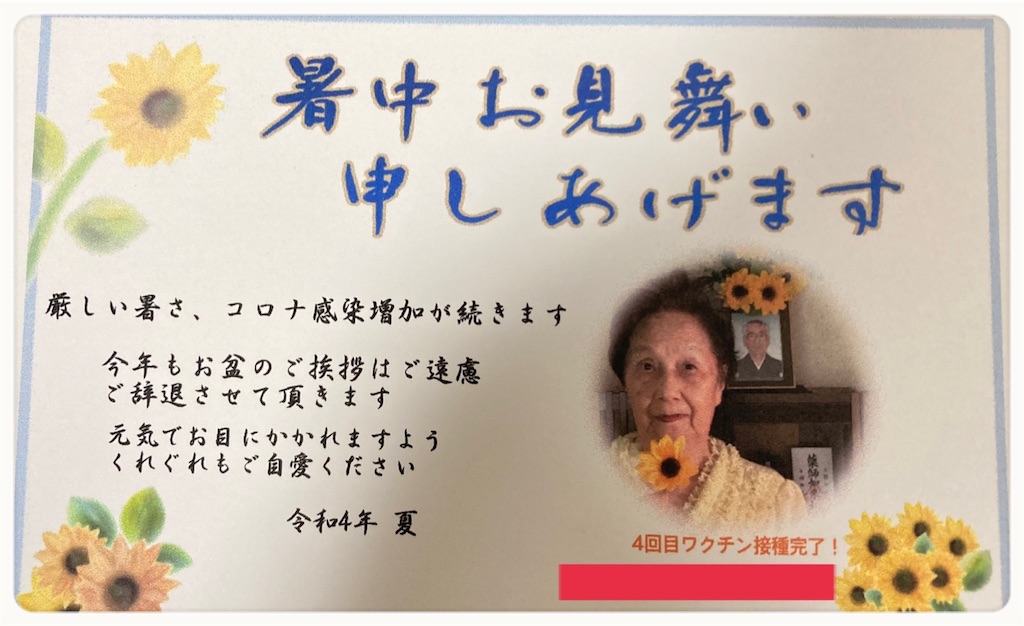 暑中お見舞い
申しあげます
厳しい暑さ、コロナ感染増加が続きます
今年もお盆のご挨拶はご遠慮
ご辞退させて頂きます
元気でお目にかかれますよう
くれぐれもご自愛ください
令和4年 夏
4回目ワクチン接種完了！